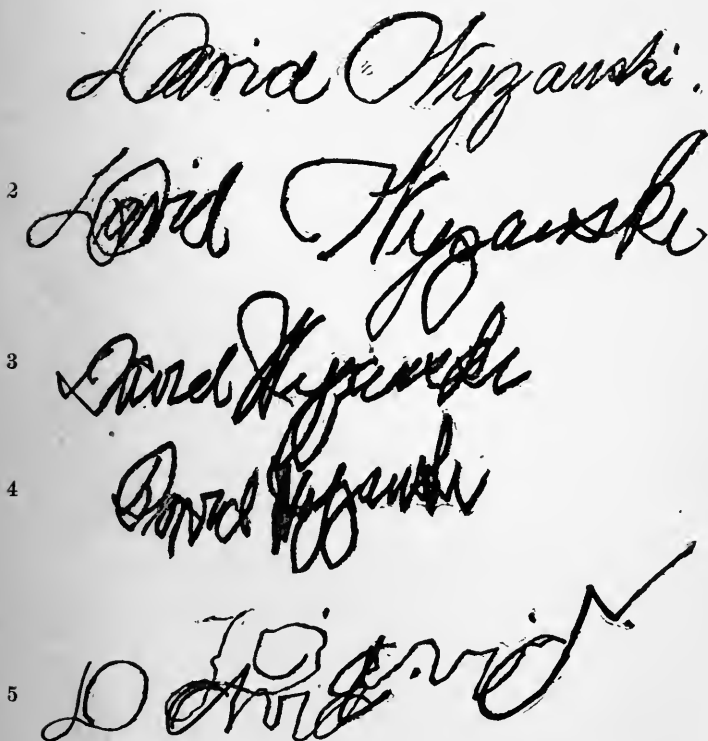 David Wyzanski.
2 David Wyzanski
3 David Wyzanski
4 David Wyzanski
5 D